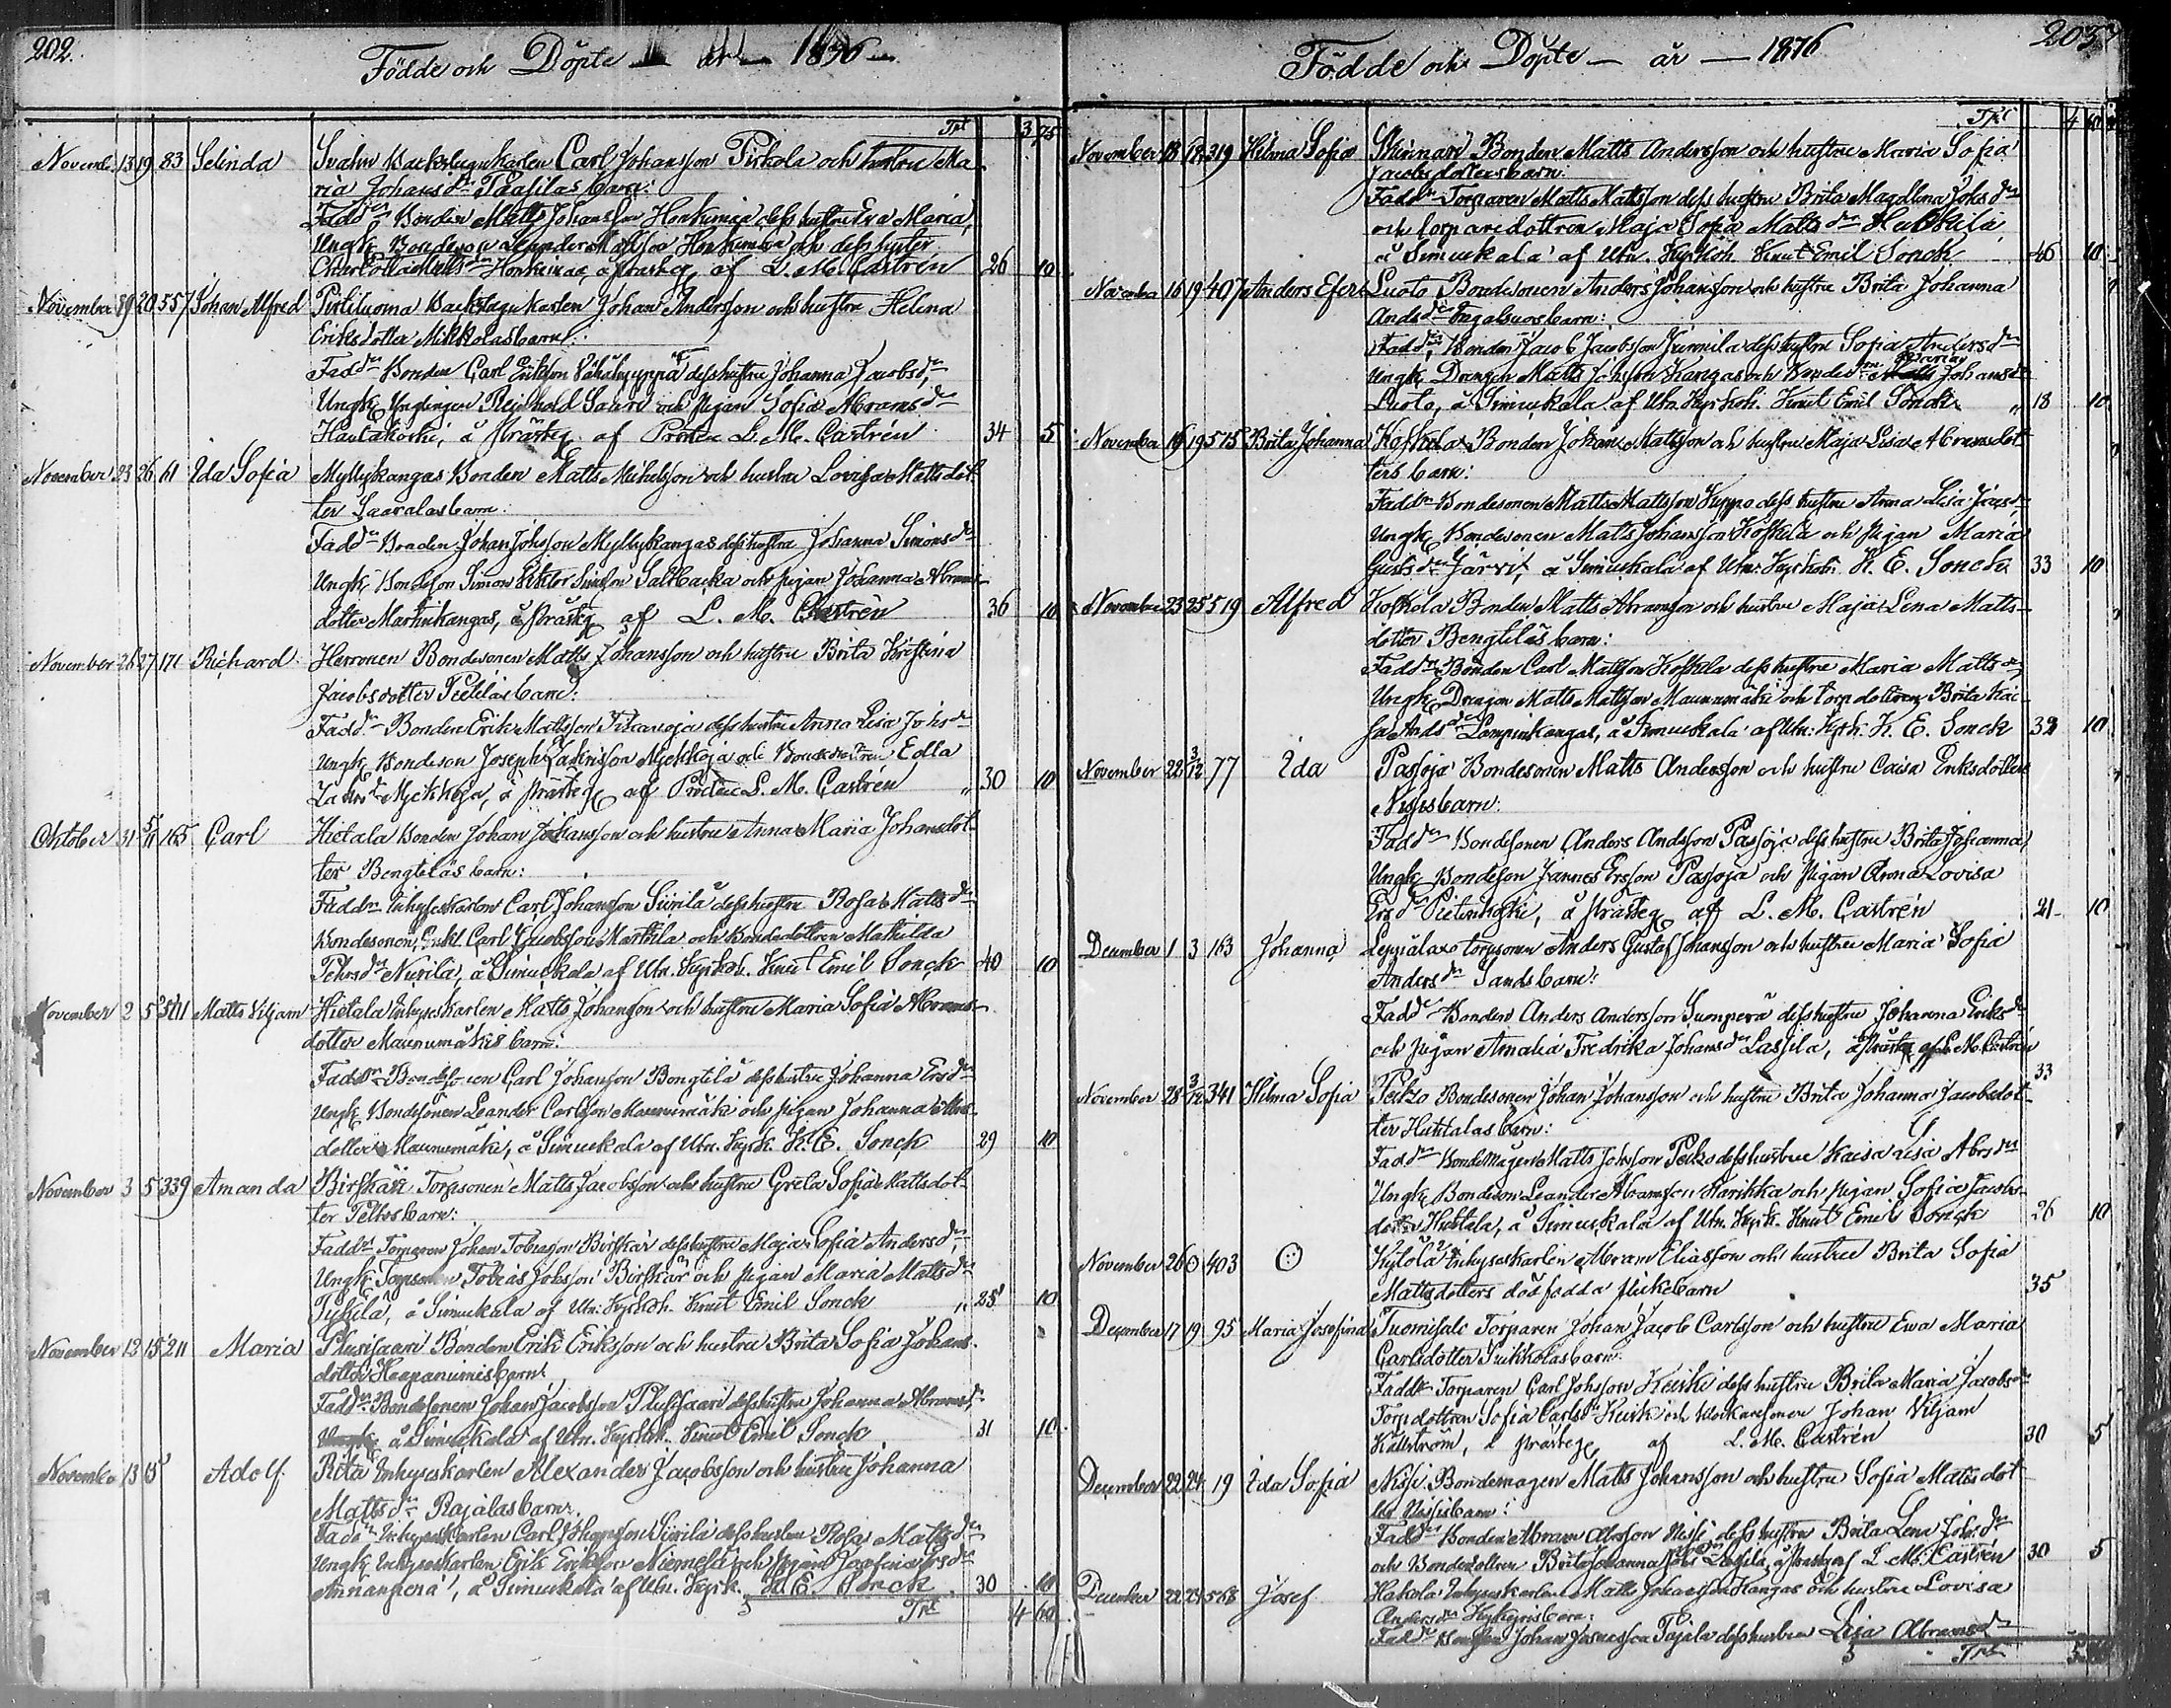 202.
Födde och Döpte — år — 1876 —
Trpt 3 75
Novemb. 13 19 83 Selinda Svahn Backstugukarlen Carl Johansson Pirkola och hustru Ma
ria Johansdr Paasilas barn:
Faddr Bonden Matts Johansson Honkimaa dess hustru Eva Maria,
Ungk. Bondeson Leander Mattsson Honkimaa och dess syster
Charlotta Mattsdr Honkimaa, å prästeg. af L. M. Castrén 26 10
November 19 20 557 Johan Alfred Pirtiluoma Backstugukarlen Johan Andersson och hustru Helena
Eriksdotter Mikkolas barn:
Faddr Bonden Carl Eriksson dess hustru Johanna Jacobsdr,
Ungk. Ynglingen Reinhold Saari och pigan Sofia Abramsdr
Hautakoski, å prästeg. af Prosten L. M. Castrén 34 5
November 23 26 61 Ida Sofia Myllykangas Bonden Matts Mickelsson och hustru Lovisa Mattsdot
ter Saaralas barn:
Faddr Bonden Johan Johsson Myllykangas dess hustru Johanna Simonsdr
Ungk. Bondeson Simon Viktor Simsson Saltbacka och pigan Johanna Abrams
dotter Martinkangas, å prästeg. af L. M. Castrén 36 10
November 26 27 171 Richard Herronen Bondesonen Matts Johansson och hustru Brita Kristina
Jacobsdotter Pietiläs barn:
Faddr Bonden Erik Mattsson Tikanoja dess hustru Anna Lisa Johsdr
Ungk. Bondeson Joseph Zakrisson Myckkoja och Bondedottren Edla
Zakrisdr Myckkoja, å prästeg. af Prosten L. M. Castrén 30 10
Oktober 31 5/11 165 Carl Hietala Bonden Johan Johansson och hustru Anna Maria Johansdot
ter Bengtiläs barn:
Faddr Inhyseskarlen Carl Johansson Siirilä dess hustru Rosa Mattsdr
Bondesonen, Enkl. Carl Jacobsson Markila och Bondedottren Mathilda
Pehrsdr Niinilä, å Siniukala af Utn. Kyrkoh. Knut Emil Sonck 40 10
November 2 5 501 Matts Viljam Hietala Inhyseskarlen Matts Johansson och hustru Maria Sofia Abrams
dotter Maunumäkis barn:
Faddr Bondesonen Carl Johansson Bengtilä dess hustru Johanna Ersdr
Ungk. Bondesonen Leander Carlsson Maunumäki och pigan Johanna Abrs
dotter Maunumäki, å Siniukala af Utn. Kyrk. K. E. Sonck 29 10
November 3 5 339 Amanda Birskär Torpsonen Matts Jacobsson och hustru Greta Sofia Mattsdot
ter Peltos barn:
Faddr Torparen Johan Tobiasson Birskär dess hustru Maja Sofia Andersdr,
Ungk. Torpsonen Tobias Johsson Birskär och pigan Maria Mattsdr
å Siniukala af Utn. Kyrkoh. Knut Emil Sonck 25 10
November 12 15 211 Maria Plusisaari Bonden Erik Eriksson och hustru Brita Sofia Johans
dotter Haapaniemis barn:
Faddr Bondesonen Johan Jacobsson Plusisaari dess hustru Johanna Abramsdr
å Siniukala af Utn. Kyrkoh. Knut Emil Sonck 31 10
November 13 15 Adolf Rita Inhyseskarlen Alexander Jacobsson och hustru Johanna
Mattsdr Rajalas barn:
Faddr Inhyseskarlen Carl Johansson Siirilä dess hustru Rosa Mattsdr
Ungk. Inhyseskarlen Erik Eriksson Niemelä och pigan Josefina Ersdr
Annanperä, å Siniukala af Utn. Kyrk. K. E. Sonck 30 10
Trpt 4 60
203
Födde och Döpte — år — 1876
Trpt 4 60
November 18 19 319 Hilma Sofia Skinnari Bonden Matts Andersson och hustru Maria Sofia
Jacobsdotters barn:
Faddr Torparen Matts Mattsson dess hustru Brita Magdlena Johsdr
och torparedottren Maja Sofia Mattsdr
å Siniukala af Utn. Kyrkoh. Knut Emil Sonck 46 10
November 16 19 407 Anders Luoto Bondesonen Anders Johansson och hustru Brita Johanna
Andsdr Ingalsuos barn:
Faddr Bonden Jacob Jacobsson Junnila dess hustru Sofia Andersdr
Ungk. Drengen Matts Johsson Kangas och Bonded. Maria Johansdr
Luoto, å Siniukala af Utn. Kyrkoh. Knut Emil Sonck 18 10
November 16 19 575 Brita Johanna Koskela Bonden Johan Mattsson och hustru Maja Lisa Abramsdot
ters barn:
Faddr Bondesonen Matts Mattsson Seppo dess hustru Anna Lisa Jacsdr
Ungk. Bondesonen Matts Johansson Koskela och pigan Maria
Gustsdr Järvi, å Siniukala af Utn. Kyrkoh. K. E. Sonck 33 10
November 23 25 519 Alfred Koskela Bonden Matts Abramsson och hustru Maja Lena Matts
dotter Bengtiläs barn:
Faddr Bonden Carl Mattsson Koskela dess hustru Maria Mattsdr
Ungk. Drengen Matts Mattsson Maunumäki och torpdottren Brita Kai
sa Andsdr Lampinkangas, å Siniukala af Utn. Kyrk. K. E. Sonck 32 10
November 22 3/12 77 Ida Pasoja Bondesonen Matts Andersson och hustru Caisa Eriksdotter
Nisis barn:
Faddr Bondesonen Anders Andsson Pasoja dess hustru Brita Johanna,
Ungk. Bondeson Jannes Ersson Pasoja och pigan Anna Lovisa
Ersdr å prästeg. af L. M. Castrén 21 10
December 1 3 163 Johanna Leppälax torpsonen Anders Gustaf Johansson och hustru Maria Sofia
Andersdr Sands barn:
Faddr Bonden Anders Andersson Suonperä dess hustru Johanna Eriksdr
och pigan Amalia Fredrika Johansdr Lassila, å prästeg. af L. M. Castrén 33
November 28 3/12 341 Hilma Sofia Peitso Bondesonen Johan Johansson och hustru Brita Johanna Jacobsdot
ter Huhtalas barn:
Faddr Bondemågen Matts Johsson Peitso dess hustru Kaisa Lisa Abrsdr
Ungk. Bondeson Leander Abramsson Harikka och pigan Sofia Jacobs
dotter Huhtala, å Siniukala af Utn. Kyrk. Knut Emil Sonck 26 10
November 26 0 403 Kylölä Inhyseskarlen Abram Eliasson och hustru Brita Sofia
Mattsdotters dödfödda flickebarn 35
December 17 19 95 Maria Josefina Tuomisalo Torparen Johan Jacob Carlsson och hustru Ewa Maria
Carlsdotter barn:
Faddr Torparen Carl Johsson Keiski dess hustru Brita Maria Jacobsdr
Torpdottren Sofia Carlsdr Keiski och Klockaresonen Johan Viljam
Källström, å prästeg. af L. M. Castrén 30 5
December 22 24 19 Ida Sofia Nisi Bondemågen Matts Johansson och hustru Sofia Mattsdot
ter Nisis barn:
Faddr Bonden Abram Abrsson Nisi dess hustru Brita Lena Johsdr
och Bondedottren Brita Johanna Lassila, å prästeg. af L. M. Castrén 30 5
December 22 24 568 Josef Hakola Inhyseskarlen Matts Johansson Kangas och hustru Lovisa
Andersdr barn:
Faddr Johan Pajala dess hustru Lisa Abramsdr
Trpt